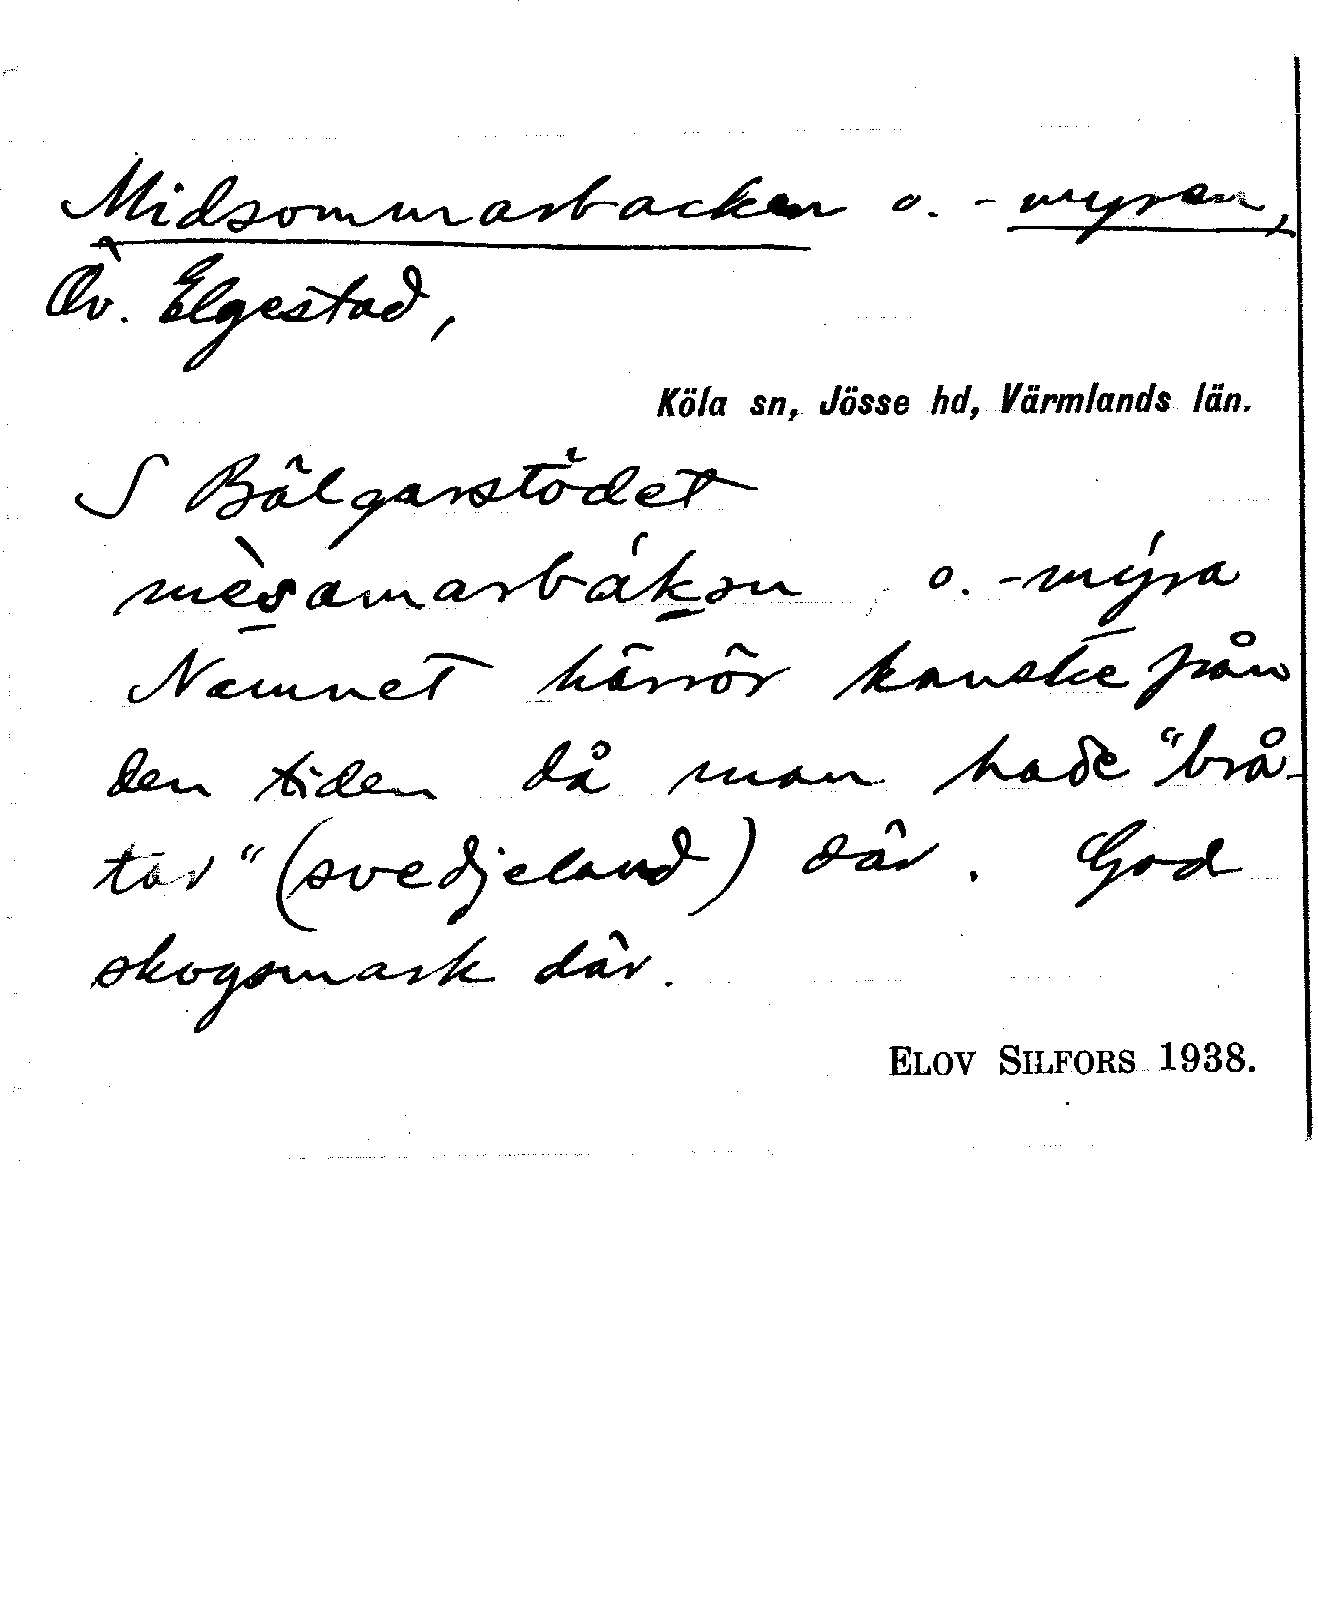 Midsommarbacken o. -myren,
Öv. Elgestad,
Köla sn, Jösse hd, Värmlands län.
S Bälgarstödet
mèsamarbákən o. -mýra
Namnet härrör kanske från
den tiden då man hade "brå-
tar" (svedjeland) där. God
skogsmark där.
ELOV SILFORS 1938.